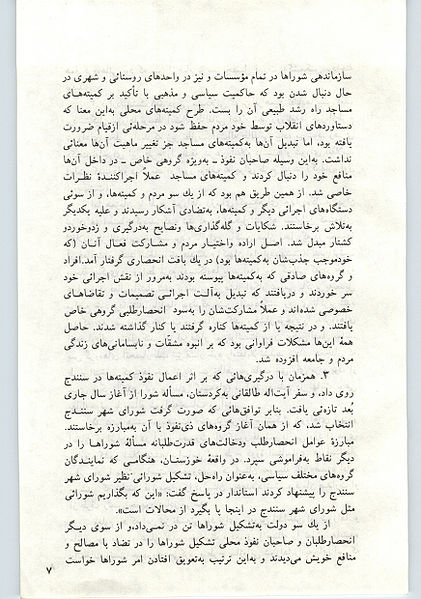 سازماندهی شوراها در تمام مؤسسات و نیز در واحدهای روستائی و شهری در
حال دنبال شدن بود که حاکمیت سیاسی و مذهبی با تأکید بر کمیته‌های
مساجد راه رشد طبیعی آن را بست. طرح کمیته‌های محلی به‌این معنا که
دستاوردهای انقلاب توسط خود مردم حفظ شود در مرحله‌ئی ازقیام ضرورت
یافته بود، اما تبدیل آن‌ها به‌کمیته‌های مساجد جز تغییر ماهیت آن‌ها معنائی
نداشت. به‌این وسیله صاحبان نفوذ ـ به‌ویژه گروهی خاص ـ در داخل آن‌ها
منافع خود را دنبال کردند و کمیته‌های مساجد عملاً اجراکنندهٔ نظرات
خاصی شد. از همین طریق هم بود که از یك سو مردم و کمیته‌ها، و از سوئی
دستگاه‌های اجرائی دیگر و کمیته‌ها، به‌تضادی آشکار رسیدند و علیه یکدیگر
به‌تلاش برخاستند. شکایات و گله‌گذاری‌ها و نصایح به‌درگیری و زدوخوردو
کشتار مبدل شد. اصل اراده واختیار مردم و مشارکت فعال آنان (که
خودموجب جذب‌شان به‌کمیته‌ها بود) در یك بافت انحصاری گرفتار آمد.افراد
و گروه‌های صادقی که به‌کمیته‌ها پیوسته بودند به‌مرور از نقش اجرائی خود
سر خوردند و دریافتند که تبدیل به‌آلت اجرائی تصمیمات و تقاضاهای
خصوصی شده‌اند و عملاً مشارکت‌شان را به‌سود انحصارطلبی گروهی خاص
یافتند. و در نتیجه یا از کمیته‌ها کناره گرفتند یا کنار گذاشته شدند. حاصل
همهٔ این‌ها مشکلات فراوانی بود که بر انبوه مشقات و نابسامانی‌های زندگی
مردم و جامعه افزوده شد.
۳. همزمان با درگیری‌هائی که بر اثر اعمال نفوذ کمیته‌ها در سنندج
روی داد، و سفر آیت‌اله طالقانی به‌کردستان، مسألهٔ شورا از آغاز سال جاری
بُعد تازه‌ئی یافت. بنابر توافق‌هائی که صورت گرفت شورای شهر سنندج
انتخاب شد، که از همان آغاز گروه‌های ذی‌نفوذ با آن به‌مبارزه برخاستند.
مبارزهٔ عوامل انحصارطلب ودخالت‌های قدرت‌طلبانه مسألهٔ شوراها را در
دیگر نقاط به‌فراموشی سپرد. در واقعهٔ خوزستان، هنگامی که نمایندگان
گروه‌های مختلف سیاسی، به‌عنوان راه‌حل، تشکیل شورائی نظیر شورای شهر
سنندج را پیشنهاد کردند استاندار در پاسخ گفت: «این که بگذاریم شورائی
مثل شورای شهر سنندج در اینجا پا بگیرد از محالات است».
از یك سو دولت به‌تشکیل شوراها تن در نمی‌داد،و از سوی دیگر
انحصارطلبان و صاحبان نفوذ محلی تشکیل شوراها را در تضاد با مصالح و
منافع خویش می‌دیدند و به‌این ترتیب به‌تعویق افتادن امر شوراها خواست
۷